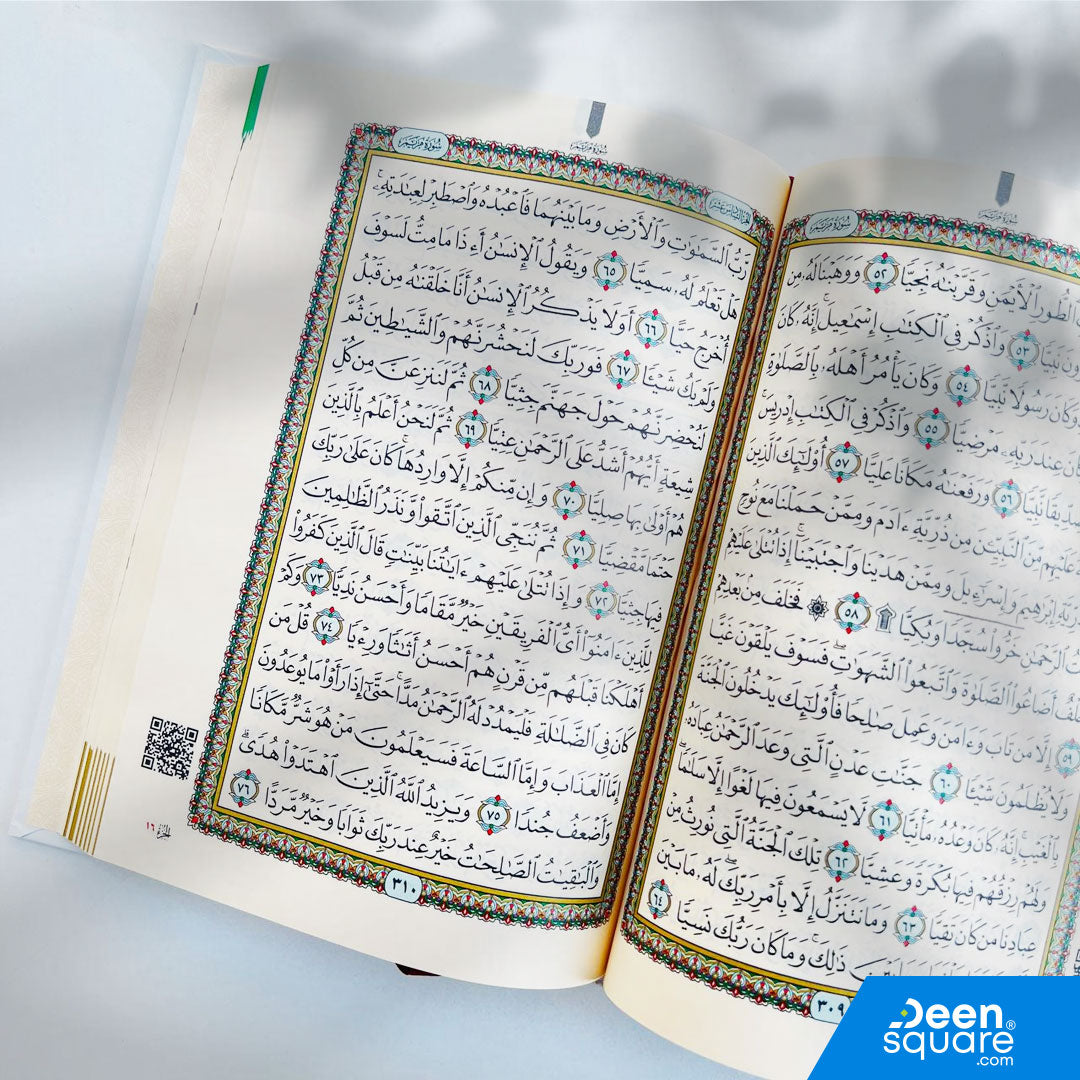 سُورَةُ مَرْيَمَ
سُورَةُ مَرْيَمَ
ٱلطُّورِ ٱلْأَيْمَنِ وَقَرَّبْنَٰهُ نَجِيًّا ٥٢ وَوَهَبْنَا لَهُۥ مِن
نَبِيًّا ٥٣ وَٱذْكُرْ فِى ٱلْكِتَٰبِ إِسْمَٰعِيلَ ۚ إِنَّهُۥ كَانَ
وَكَانَ رَسُولًا نَّبِيًّا ٥٤ وَكَانَ يَأْمُرُ أَهْلَهُۥ بِٱلصَّلَوٰةِ
عِندَ رَبِّهِۦ مَرْضِيًّا ٥٥ وَٱذْكُرْ فِى ٱلْكِتَٰبِ إِدْرِيسَ ۚ
نَّبِيًّا ٥٦ وَرَفَعْنَٰهُ مَكَانًا عَلِيًّا ٥٧ أُو۟لَٰٓئِكَ ٱلَّذِينَ
عَلَيْهِم مِّنَ ٱلنَّبِيِّۦنَ مِن ذُرِّيَّةِ ءَادَمَ وَمِمَّنْ حَمَلْنَا مَعَ نُوحٍ
إِبْرَٰهِيمَ وَإِسْرَٰٓءِيلَ وَمِمَّنْ هَدَيْنَا وَٱجْتَبَيْنَآ ۚ إِذَا تُتْلَىٰ عَلَيْهِمْ
ٱلرَّحْمَٰنِ خَرُّوا۟ سُجَّدًا وَبُكِيًّا ۩ ٥٨ ۞ فَخَلَفَ مِنۢ بَعْدِهِمْ
أَضَاعُوا۟ ٱلصَّلَوٰةَ وَٱتَّبَعُوا۟ ٱلشَّهَوَٰتِ ۖ فَسَوْفَ يَلْقَوْنَ غَيًّا
٥٩ إِلَّا مَن تَابَ وَءَامَنَ وَعَمِلَ صَٰلِحًا فَأُو۟لَٰٓئِكَ يَدْخُلُونَ ٱلْجَنَّةَ
وَلَا يُظْلَمُونَ شَيْـًٔا ٦٠ جَنَّٰتِ عَدْنٍ ٱلَّتِى وَعَدَ ٱلرَّحْمَٰنُ عِبَادَهُۥ
بِٱلْغَيْبِ ۚ إِنَّهُۥ كَانَ وَعْدُهُۥ مَأْتِيًّا ٦١ لَّا يَسْمَعُونَ فِيهَا لَغْوًا إِلَّا سَلَٰمًا ۖ
وَلَهُمْ رِزْقُهُمْ فِيهَا بُكْرَةً وَعَشِيًّا ٦٢ تِلْكَ ٱلْجَنَّةُ ٱلَّتِى نُورِثُ مِنْ
عِبَادِنَا مَن كَانَ تَقِيًّا ٦٣ وَمَا نَتَنَزَّلُ إِلَّا بِأَمْرِ رَبِّكَ ۖ لَهُۥ مَا بَيْنَ
بَيْنَ ذَٰلِكَ ۚ وَمَا كَانَ رَبُّكَ نَسِيًّا ٦٤
٣٠٩
سُورَةُ مَرْيَمَ
سُورَةُ مَرْيَمَ
الجزء السادس عشر
رَّبُّ ٱلسَّمَٰوَٰتِ وَٱلْأَرْضِ وَمَا بَيْنَهُمَا فَٱعْبُدْهُ وَٱصْطَبِرْ لِعِبَٰدَتِهِۦ ۚ
هَلْ تَعْلَمُ لَهُۥ سَمِيًّا ٦٥ وَيَقُولُ ٱلْإِنسَٰنُ أَءِذَا مَا مِتُّ لَسَوْفَ
أُخْرَجُ حَيًّا ٦٦ أَوَلَا يَذْكُرُ ٱلْإِنسَٰنُ أَنَّا خَلَقْنَٰهُ مِن قَبْلُ
وَلَمْ يَكُ شَيْـًٔا ٦٧ فَوَرَبِّكَ لَنَحْشُرَنَّهُمْ وَٱلشَّيَٰطِينَ ثُمَّ
لَنُحْضِرَنَّهُمْ حَوْلَ جَهَنَّمَ جِثِيًّا ٦٨ ثُمَّ لَنَنزِعَنَّ مِن كُلِّ
شِيعَةٍ أَيُّهُمْ أَشَدُّ عَلَى ٱلرَّحْمَٰنِ عِتِيًّا ٦٩ ثُمَّ لَنَحْنُ أَعْلَمُ بِٱلَّذِينَ
هُمْ أَوْلَىٰ بِهَا صِلِيًّا ٧٠ وَإِن مِّنكُمْ إِلَّا وَارِدُهَا ۚ كَانَ عَلَىٰ رَبِّكَ
حَتْمًا مَّقْضِيًّا ٧١ ثُمَّ نُنَجِّى ٱلَّذِينَ ٱتَّقَوا۟ وَّنَذَرُ ٱلظَّٰلِمِينَ
فِيهَا جِثِيًّا ٧٢ وَإِذَا تُتْلَىٰ عَلَيْهِمْ ءَايَٰتُنَا بَيِّنَٰتٍ قَالَ ٱلَّذِينَ كَفَرُوا۟
لِلَّذِينَ ءَامَنُوٓا۟ أَىُّ ٱلْفَرِيقَيْنِ خَيْرٌ مَّقَامًا وَأَحْسَنُ نَدِيًّا ٧٣ وَكَمْ
أَهْلَكْنَا قَبْلَهُم مِّن قَرْنٍ هُمْ أَحْسَنُ أَثَٰثًا وَرِءْيًا ٧٤ قُلْ مَن
كَانَ فِى ٱلضَّلَٰلَةِ فَلْيَمْدُدْ لَهُ ٱلرَّحْمَٰنُ مَدًّا ۚ حَتَّىٰٓ إِذَا رَأَوْا۟ مَا يُوعَدُونَ
إِمَّا ٱلْعَذَابَ وَإِمَّا ٱلسَّاعَةَ فَسَيَعْلَمُونَ مَنْ هُوَ شَرٌّ مَّكَانًا
وَأَضْعَفُ جُندًا ٧٥ وَيَزِيدُ ٱللَّهُ ٱلَّذِينَ ٱهْتَدَوْا۟ هُدًى ۗ
وَٱلْبَٰقِيَٰتُ ٱلصَّٰلِحَٰتُ خَيْرٌ عِندَ رَبِّكَ ثَوَابًا وَخَيْرٌ مَّرَدًّا ٧٦
٣١٠
الجزء ١٦
Deen®
square
.com